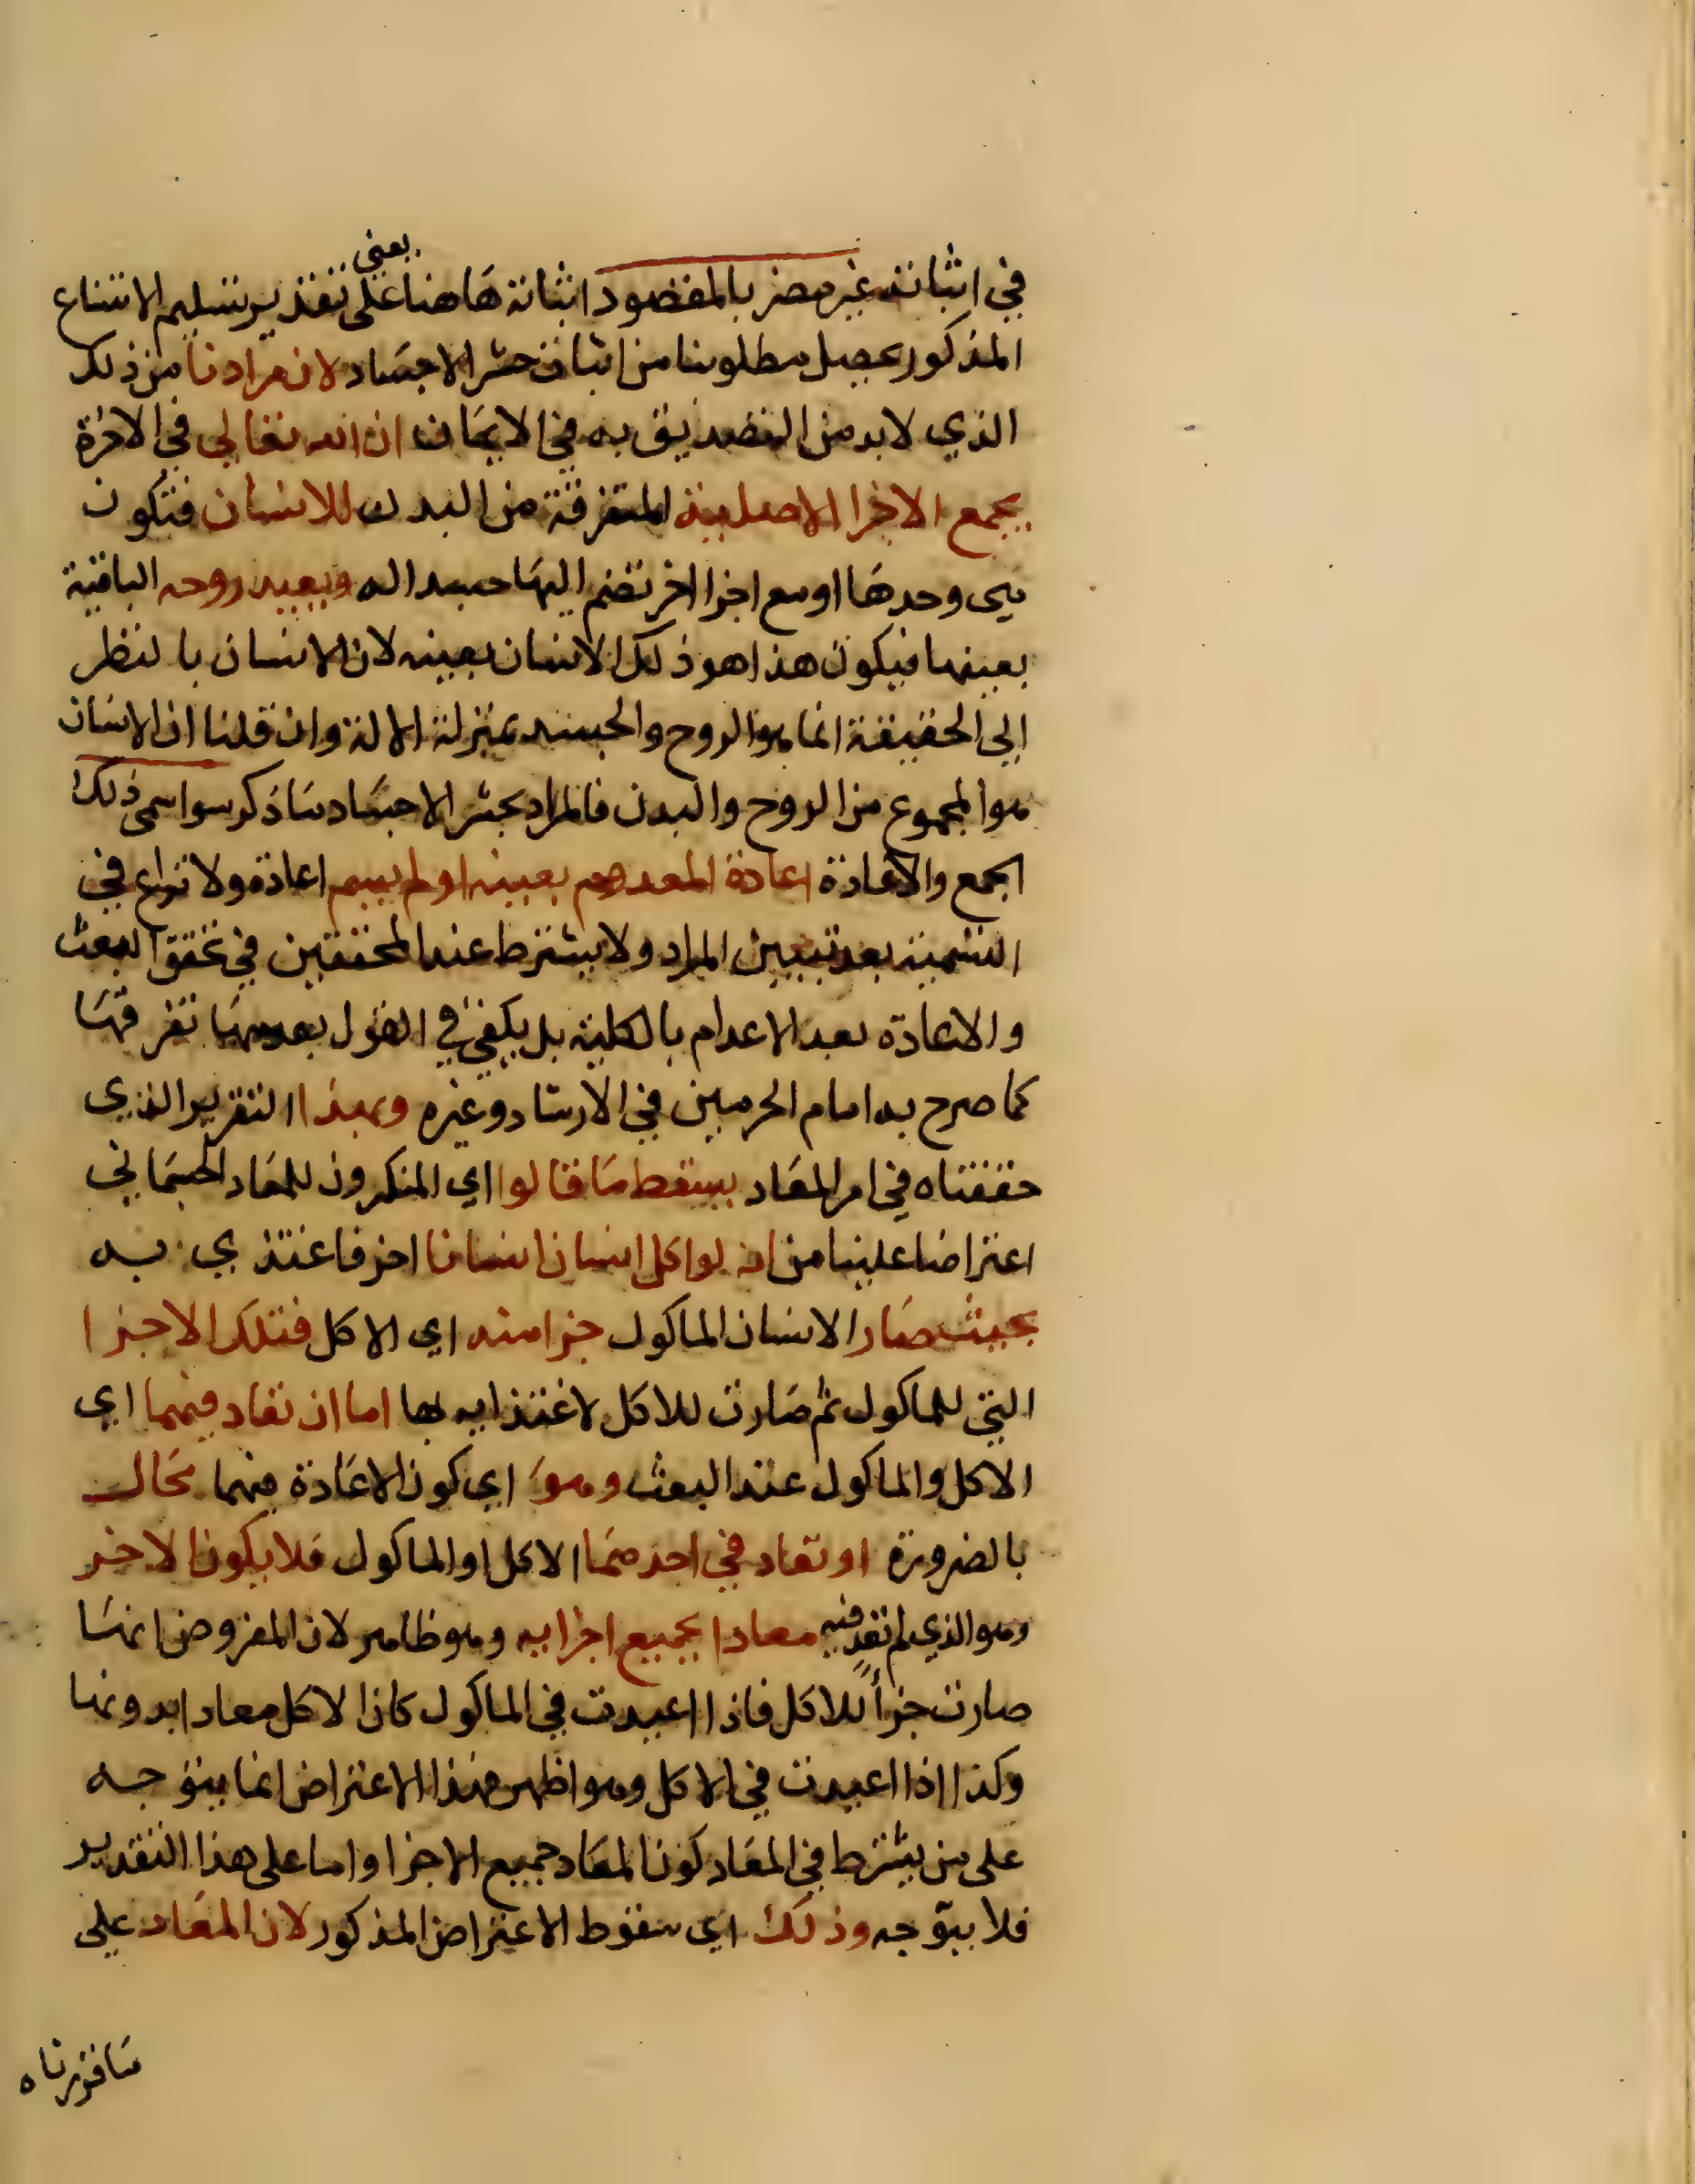 يعني
في اثباته غير مضر بالمقصود اثباته هاهنا على تقدير تسليم الامتناع
المذكور يحصل مطلوبنا من اثبات حشر الاجساد لان مرادنا من ذلك
الذي لا بد من التصديق به في الايمان ان الله تعالى في الاخرة
يجمع الاجزا الاصلية المتفرقة من البدن للانسان فتكون
هي وحدها او مع اجزا اخر تضم اليها جسدا له ويعيد روحه الباقية
بعينها فيكون هذا هو ذلك الانسان بعينه لان الانسان بالنظر
الى الحقيقة انما هو الروح والجسد بمنزلة الالة وان قلنا ان الانسان
هو المجموع من الروح والبدن فالمراد بحشر الاجساد ما ذكر سوا سمى ذلك
الجمع والاعادة اعادة المعدوم بعينه او لم يسم اعادة ولا نزاع في
التسمية بعد تبيين المراد ولا يشترط عند المحققين في تحقق البعث
والاعادة بعد الاعدام بالكلية بل يكفي في القول بعدمها تفرقها
كما صرح به امام الحرمين في الارشاد وغيره وبهذا التقرير الذي
حققناه في امر المعاد يسقط ما قالوا اي المنكرون للمعاد الجسماني
اعتراضا علينا من انه لو اكل انسان انسانا اخر فاغتذي به
بحيث صار الانسان الماكول جزا منه اي الاكل فتلك الاجزا
التي للماكول ثم صارت للاكل لاغتذايه بها اما ان تعاد فيهما اي
الاكل والماكول عند البعث وهو اي كون الاعادة فيهما محال
بالضرورة او تعاد في احدهما الاكل او الماكول فلا يكون الاخر
وهو الذي لم تعد فيه معادا بجميع اجزايه وهو ظاهر لان المفروض انها
صارت جزأ للاكل فاذا اعيدت في الماكول كان الاكل معادا بدونها
وكذا اذا اعيدت في الاكل وهو اظهر فهذا الاعتراض انما يتوجه
على من يشترط في المعاد كون المعاد جميع الاجزا واما على هذا التقدير
فلا يتوجه وذلك اي سقوط الاعتراض المذكور لان المعاد على
ما قررناه